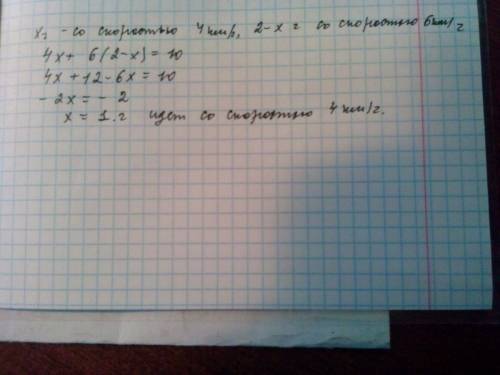 x ч - со скоростью 4 км/ч, 2-x ч со скоростью 6 км/ч
4x + 6(2-x) = 10
4x + 12 - 6x = 10
- 2x = - 2
x = 1 ч идет со скоростью 4 км/ч.